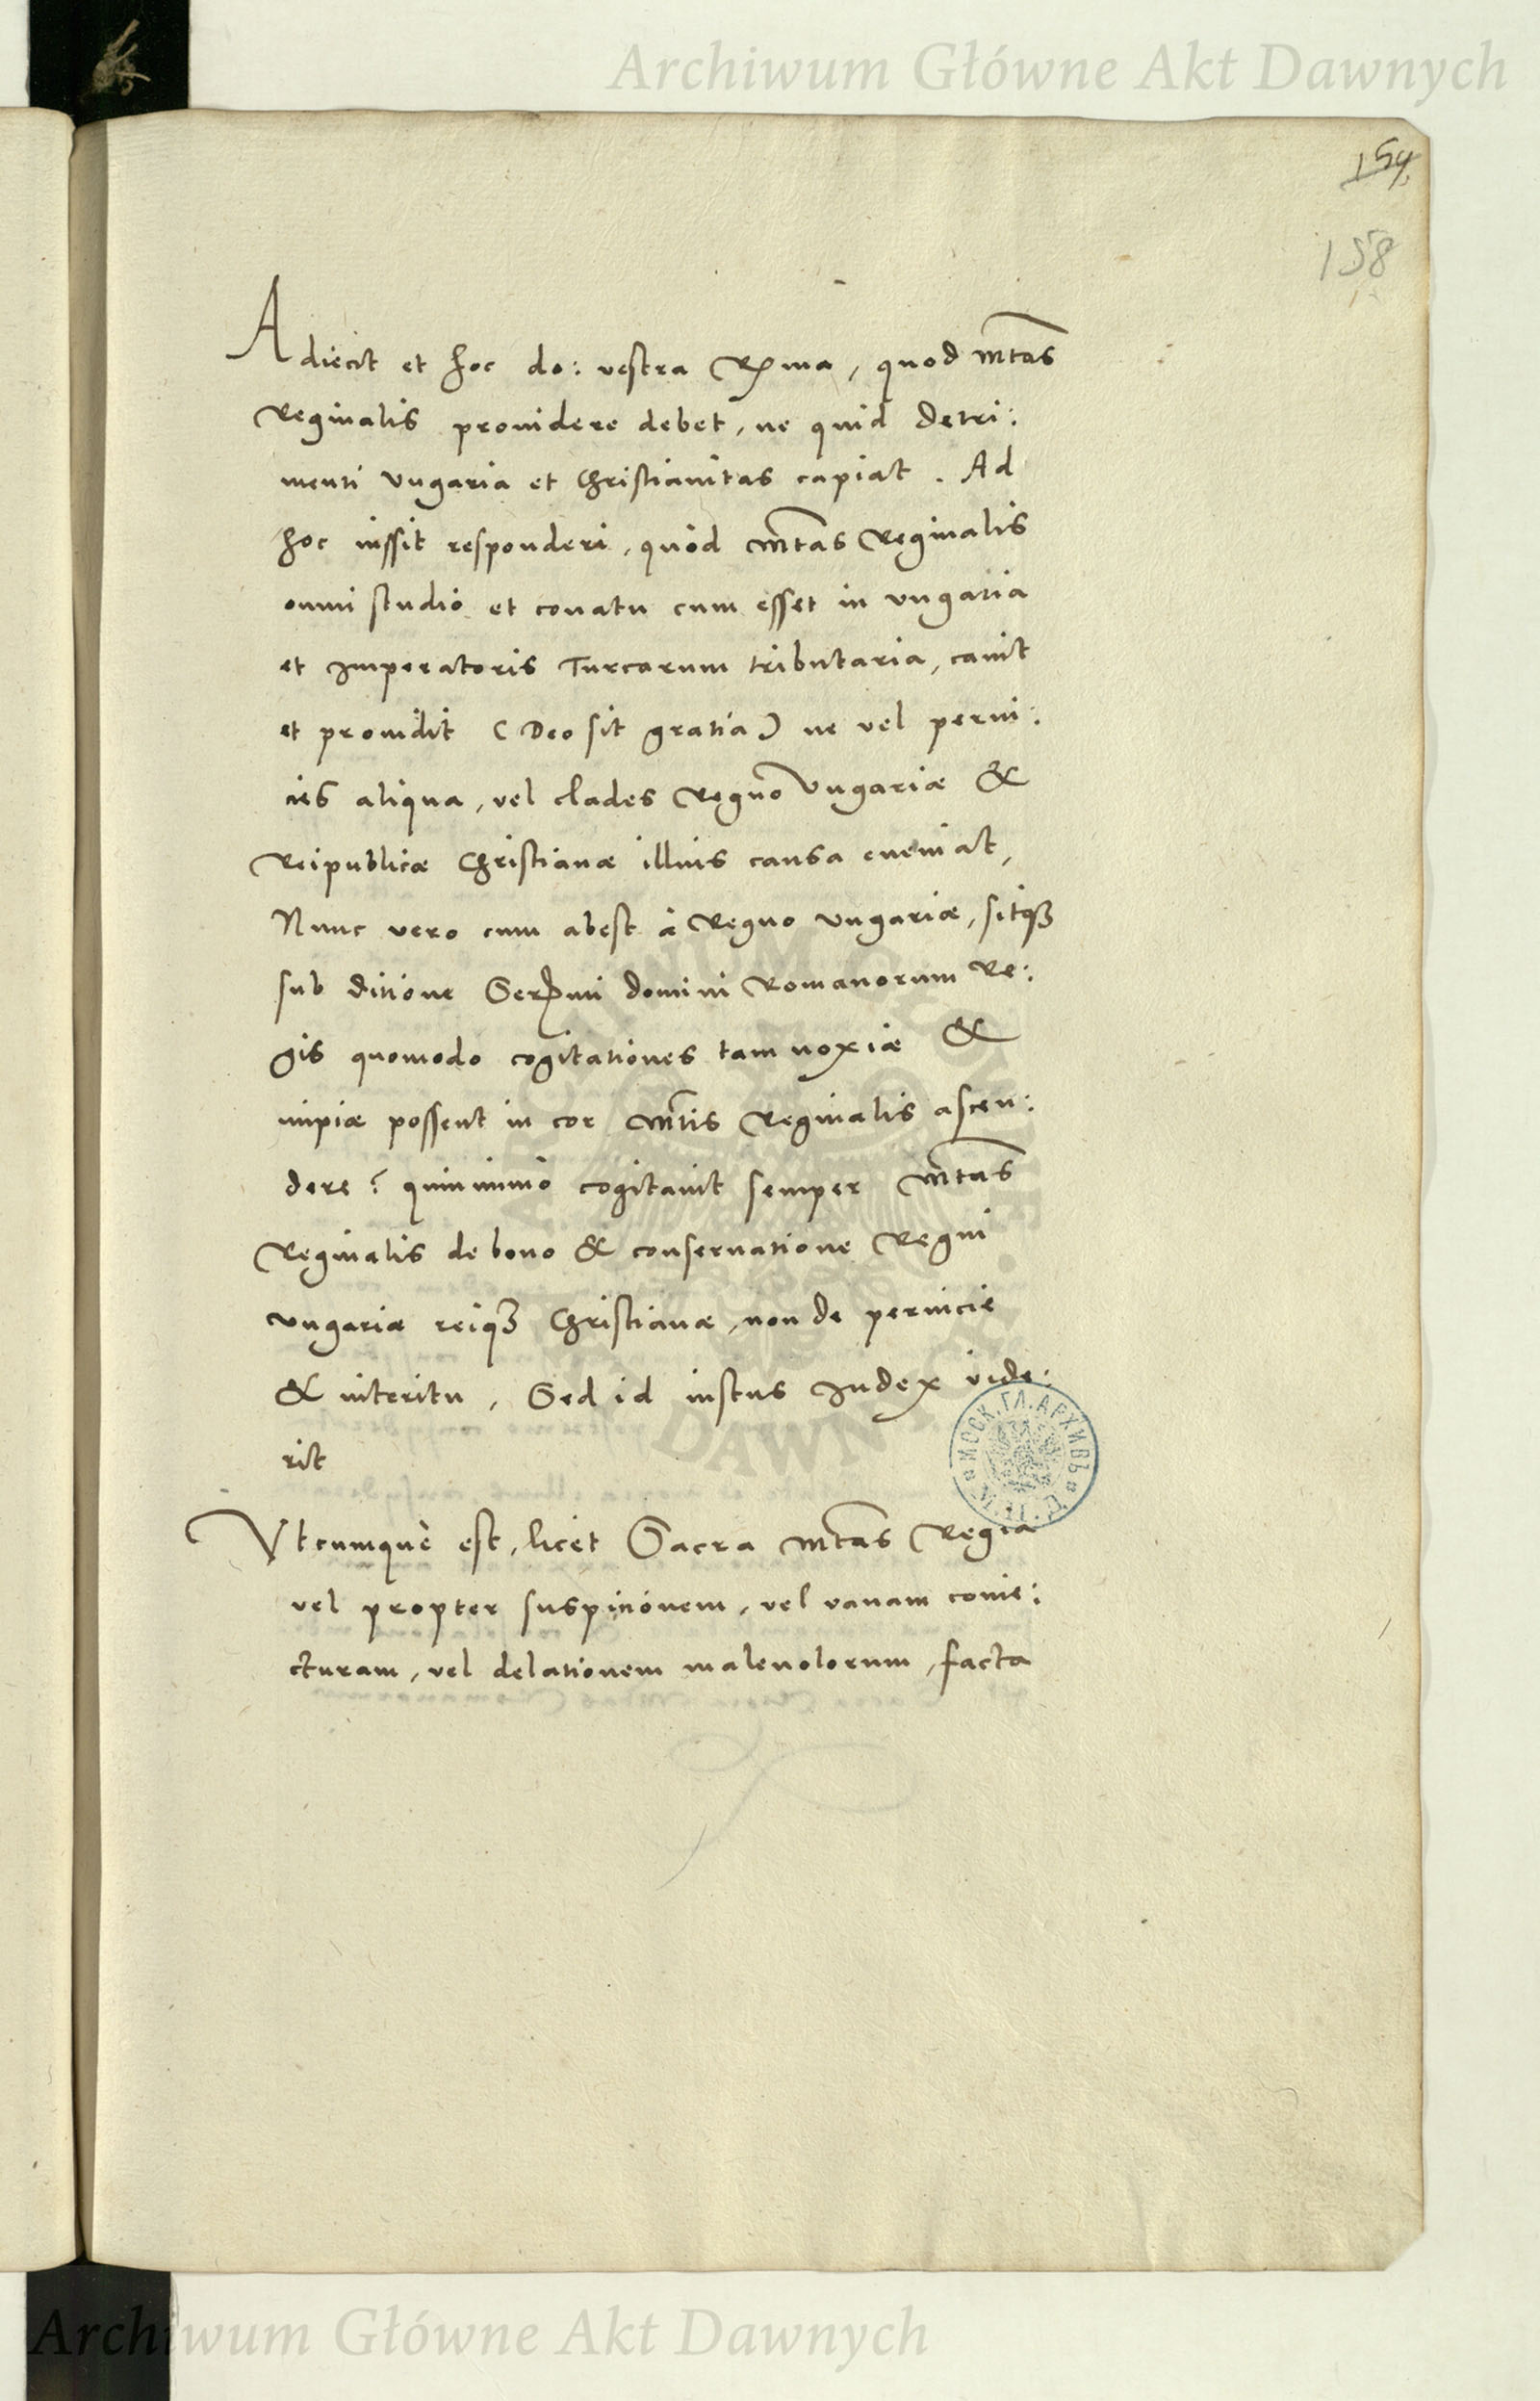 Archiwum Główne Akt Dawnych
154
158
Adiecit et hoc do: vestra Rma, quod Mtas
Reginalis prouidere debet, ne quid detri:
menti Vngaria et Christianitas capiat. Ad
hoc iussit responderi, quòd Mtas Reginalis
omni studio et conatu cum esset in vngaria
et Imperatoris Turcarum tributaria, cauit
et prouidit (Deo sit gratia) ne vel perni:
cies aliqua, vel clades Regno Vngariæ &
Reipublicæ Christianæ illius causa eueniat,
Nunc vero cum abest à Regno vngariæ, sitqʒ
sub ditione Sermi domini Romanorum Re:
gis quomodo cogitationes tam noxiæ &
impiæ possent in cor Mtis Reginalis ascen:
dere? quinimmò cogitauit semper Mtas
Reginalis de bono & conseruatione Regni
vngariæ reiqʒ Christianæ, non de pernicie
& interitu, Sed id iustus Iudex vide:
rit
Vtcumquè est, licet Sacra Mtas Regia
vel propter suspicionem, vel vanam conie:
cturam, vel delationem maleuolorum, facta
Archiwum Główne Akt Dawnych